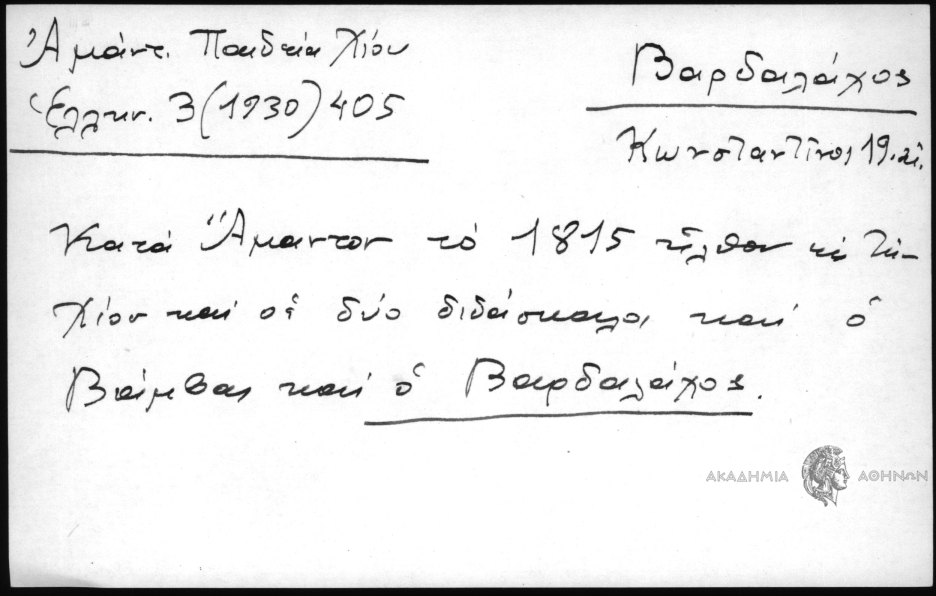 Ἀμάντ. Παιδεία Χίου
Ἑλλην. 3 (1930) 405
Βαρδαλάχος
Κωνσταντῖνος 19. αἰ.
Κατὰ Ἄμαντον τὸ 1815 ἦλθον εἰς τὴν
Χίον καὶ οἱ δύο διδάσκαλοι καὶ ὁ
Βάμβας καὶ ὁ Βαρδαλάχος.
ΑΚΑΔΗΜΙΑ ΑΘΗΝΩΝ